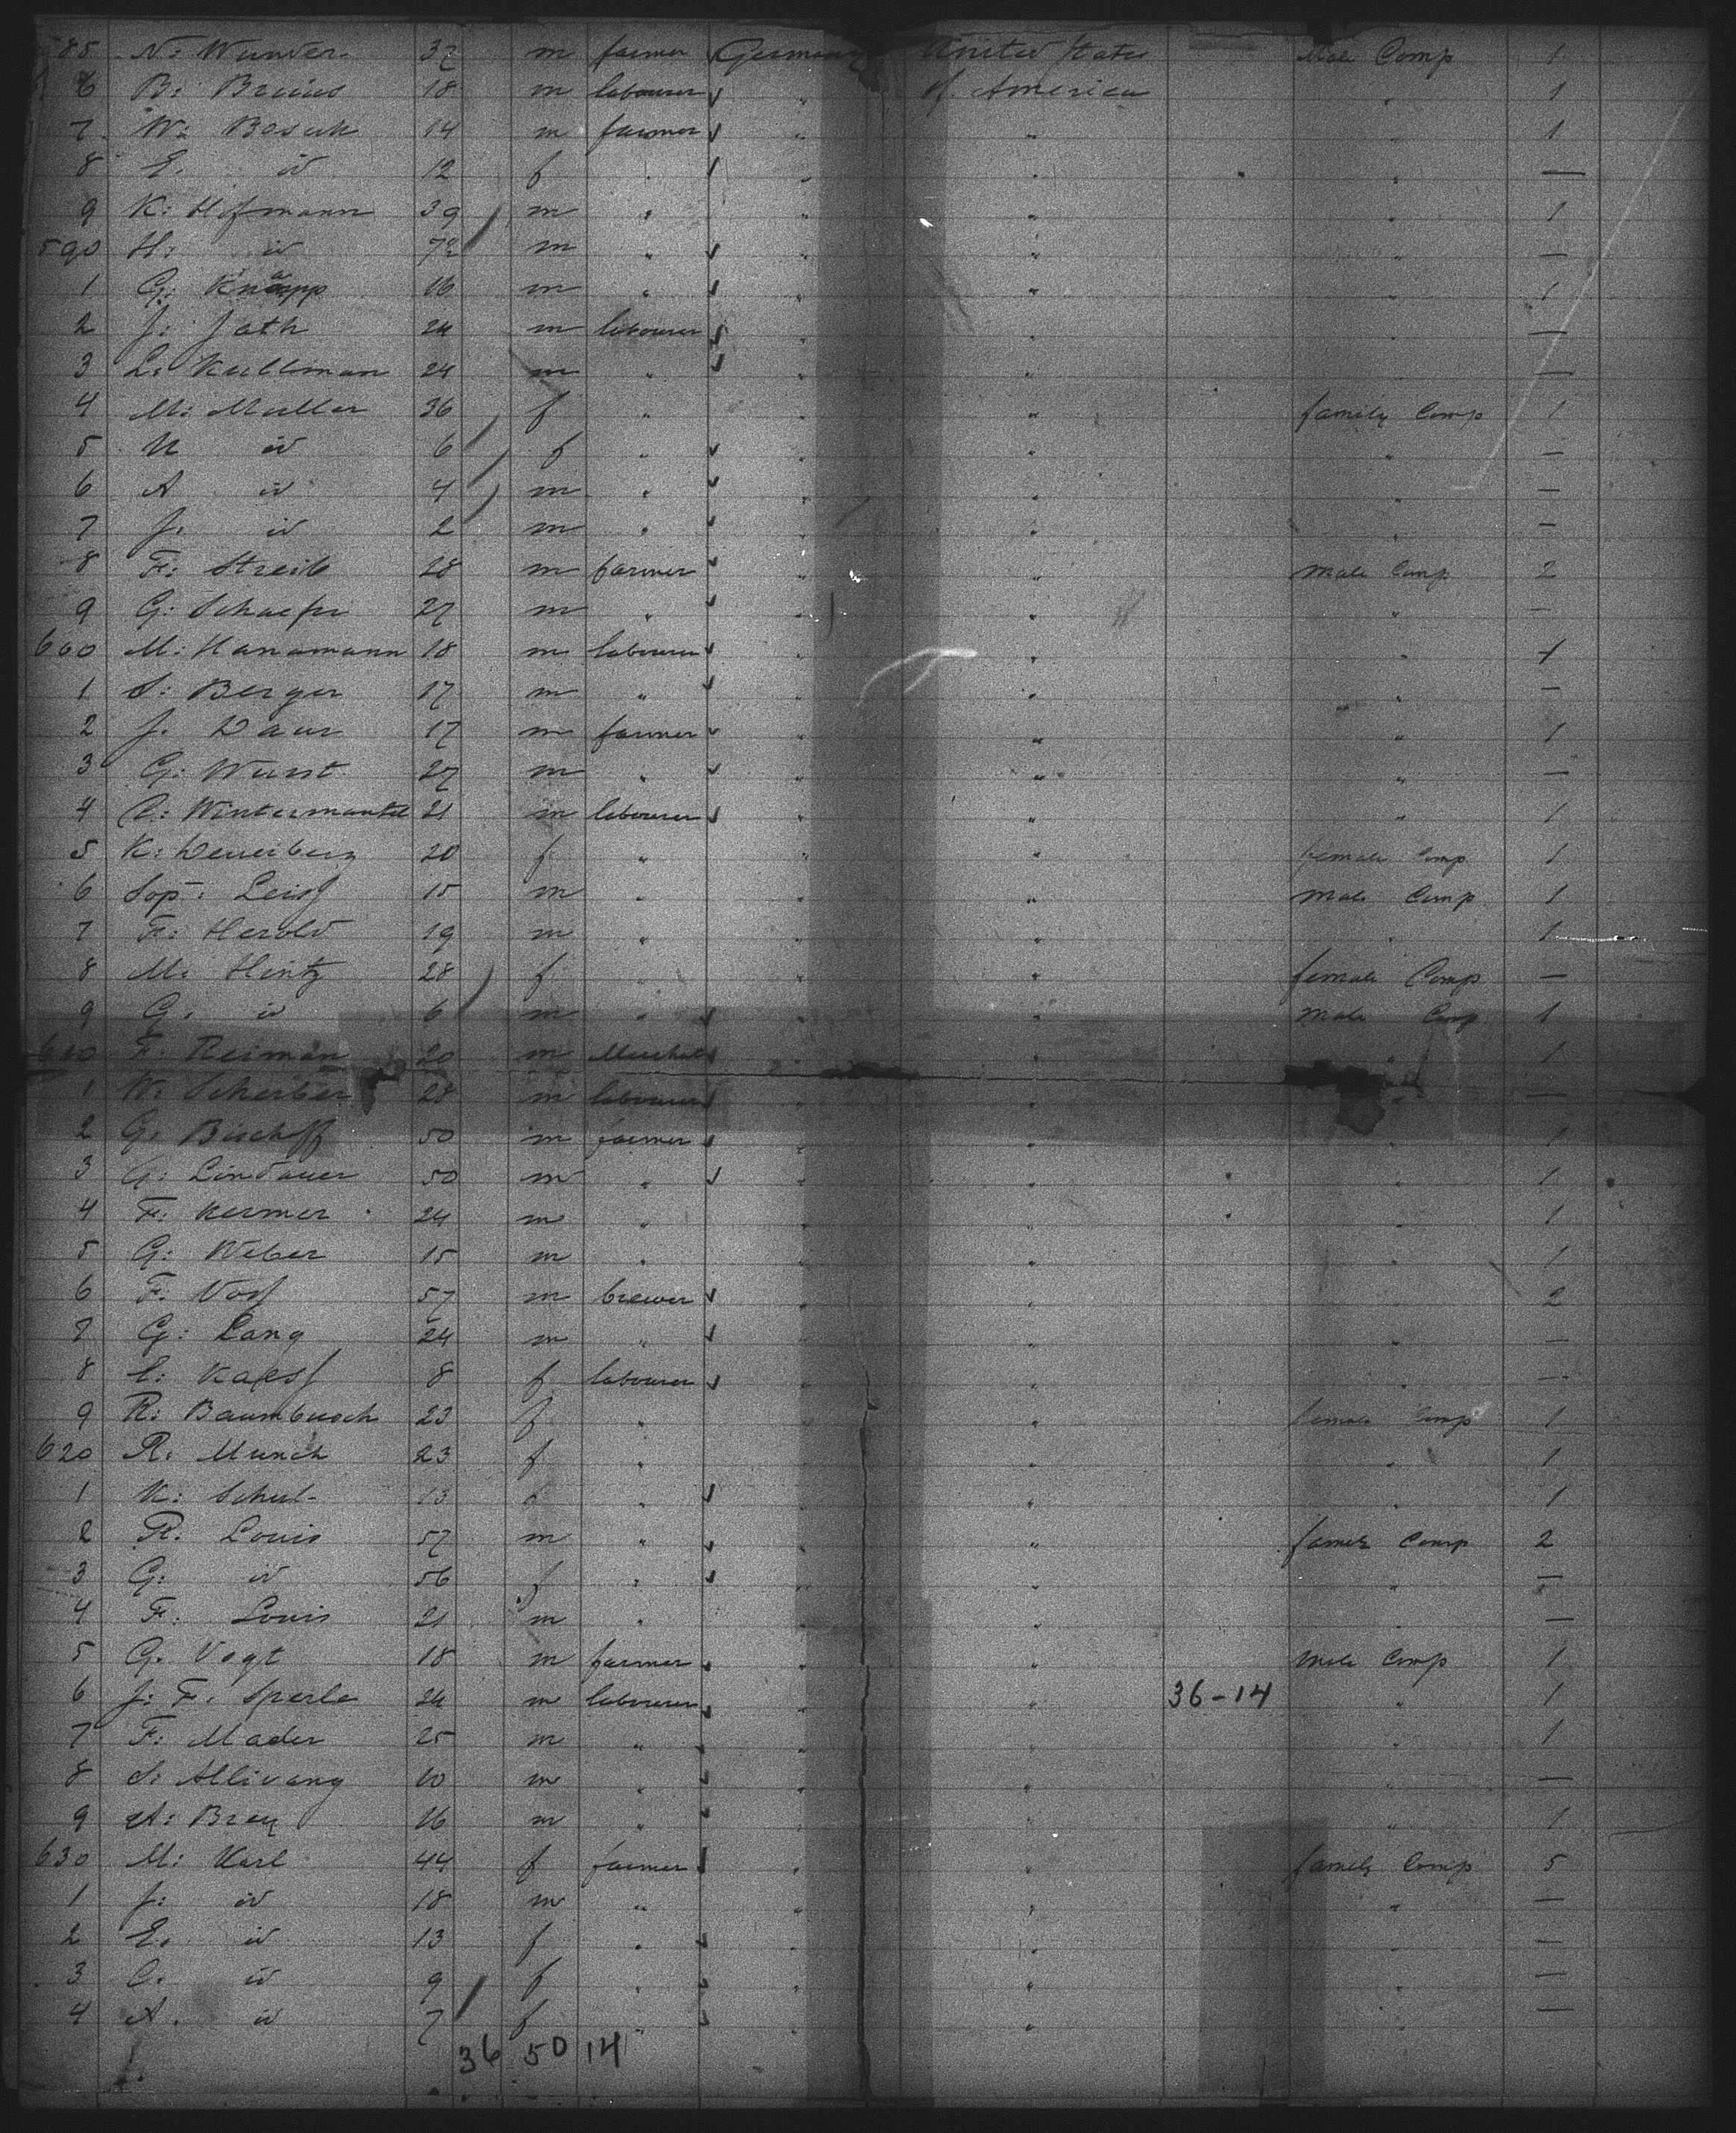 585 N: Wunder 32 m farmer Germany United States Male Comp 1
6 B: Bruns 18 m labourer " of America " 1
7 W: Bosuk 14 m farmer " " " 1
8 E. id 12 f " " " " —
9 K: Hofmann 39 m " " " " 1
590 H: id 72 m " " " " —
1 G: Knapp 16 m " " " " 1
2 J: Jath 24 m labourer " " " —
3 L: Kullman 24 m " " " " —
4 M: Muller 36 f " " " family Comp 1
5 id 6 f " " " " —
6 A id 4 m " " " " —
7 J. id 2 m " " " " —
8 F: Streib 28 m farmer " " Male Comp 2
9 G: Schaefer 27 m " " " " —
600 M: Hanamann 18 m labourer " " " 1
1 S: Berger 17 m " " " " —
2 J. Daur 17 m farmer " " " 1
3 G: Wurst 27 m " " " " —
4 C: Wintermantel 21 m labourer " " " 1
5 K: Deuerberg 20 f " " " female Comp 1
6 Sop: Leiss 15 m " " " Male Comp 1
7 F: Herold 19 m " " " " 1
8 M. Hintz 28 f " " " female Comp —
9 G. id 6 m " " " Male Comp 1
610 F: Reiman 20 m " " " 1
1 W: Scherber 28 m labourer " " " —
2 G. Bischoff 50 m farmer " " " 1
3 G: Lindauer 50 m " " " " 1
4 F: Kermer 24 m " " " " 1
5 G: Weber 15 m " " " " 1
6 F. Voss 57 m brewer " " " 2
7 G: Lang 24 m " " " " —
8 C: Kaess 8 f labourer " " " —
9 R: Baumbusch 23 f " " " female Comp 1
620 R. Munch 23 f " " " " 1
1 K: 13 f " " " " 1
2 R. Louis 57 m " " " family Comp 2
3 G: id 56 f " " " " —
4 F. Louis 21 m " " " " —
5 G. Vogt 18 m farmer " " Male Comp 1
6 J: F. Sperle 24 m labourer " " 36-14 " 1
7 F: Mader 25 m " " " " 1
8 S: Allivang 60 m " " " " —
9 A: Brey 16 m " " " " 1
630 M: Karl 44 f farmer " " family Comp 5
1 J: id 18 m " " " " —
2 E. id 13 f " " " " —
3 C. id 9 f " " " " —
4 A. id 7 f " " " " —
36 50 14